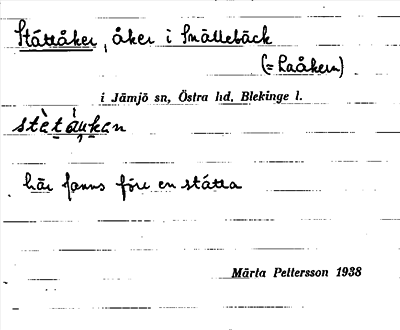 Ståttåker, åker i Smällebäck
(= Laåkern)
i Jämjö sn, Östra hd, Blekinge l.
stètàukan
här fanns före en stätta
Märta Pettersson 1938